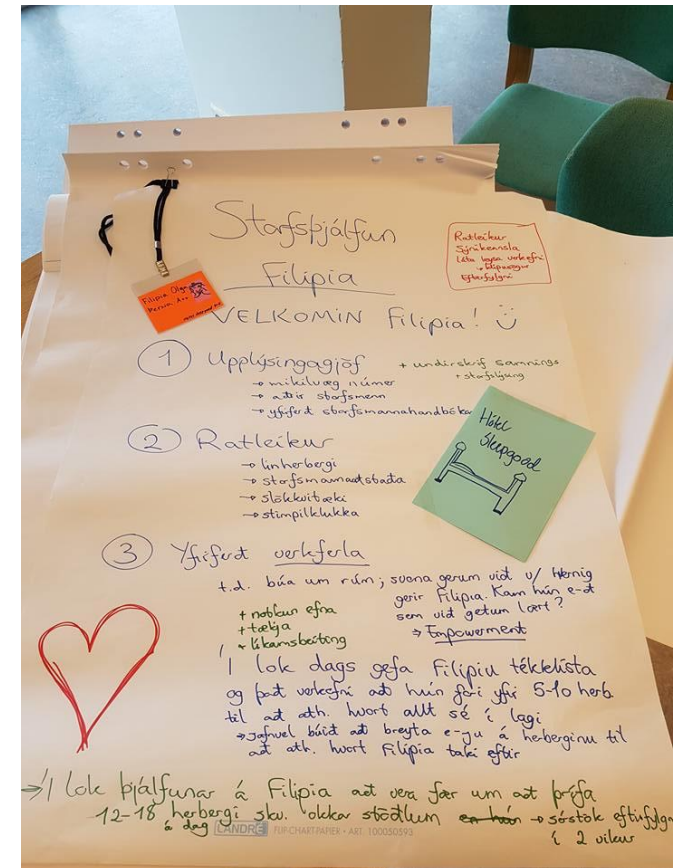 Starfsþjálfun
Filipia
VELKOMIN Filipia!
Ratleikur
Sýnikennsla
láta leysa verkefni
Eftirfylgni
Filipia Olga
① Upplýsingagjöf + undirskrif samnings
+ starfslýsing
→ mikilvæg númer
→ aðrir starfsmenn
→ yfirferð starfsmannahandbókar
Hótel
Sleepgood
② Ratleikur
→ línherbergi
→ starfsmannaaðstaða
→ slökkvitæki
→ stimpilklukka
③ Yfirferð verkferla
t.d. búa um rúm; svona gerum við v/ Hvernig
gerir Filipia. Kann hún e-ð
sem við getum lært?
→ Empowerment
+ notkun efna
+ tækja
+ líkamsbeiting
Í lok dags gefa Filipiu tékklista
og það verkefni að hún fari yfir 5-10 herb
til að ath. hvort allt sé í lagi
→ Jafnvel búið að breyta e-ju á herberginu til
að ath. hvort Filipia taki eftir
→ Í lok þjálfunar á Filipia að vera fær um að þrífa
12-18 herbergi skv. okkar stöðlum en hún → sérstök eftirfylgni
á dag í 2 vikur
LANDRÉ FLIP-CHARTPAPIER • ART. 100050593